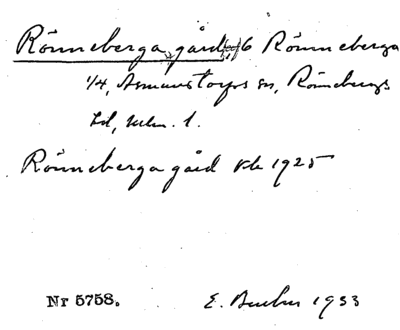 Rönneberga gård, 6 Rönneberga
1/4, Asmundtorps sn, Rönnebergs
hd, Malm. l.
Rönneberga gård 1925
Nr 5758.
E. 1933